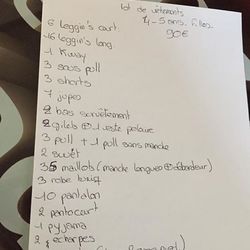 lot de vêtements
4-5 ans. filles
90€
6 leggin's court.
16 leggin's long
1 Kway
3 sous pull
3 shorts
7 jupes
2 bas survêtement
2 gilets + 1 veste polaire
3 pull + 1 pull sans manche
2 swet
35 maillots (manche longues + débardeur)
3 robe
10 pantalon
2 pantacourt
1 pyjama
2 écharpes